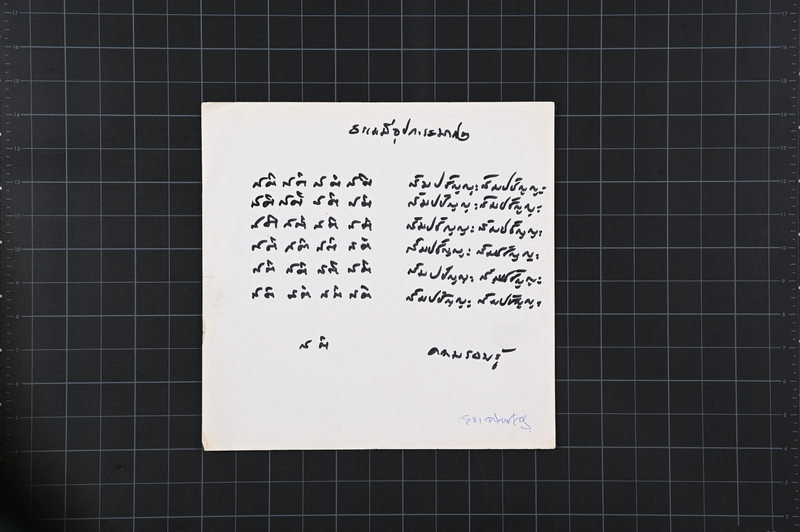 ธรรมมีอุปการะมาก ๒
สติ สติ สติ สติ สัมปชัญญะ สัมปชัญญะ
สติ สติ สติ สติ สัมปชัญญะ สัมปชัญญะ
สติ สติ สติ สติ สัมปชัญญะ สัมปชัญญะ
สติ สติ สติ สติ สัมปชัญญะ สัมปชัญญะ
สติ สติ สติ สติ สัมปชัญญะ สัมปชัญญะ
สติ สติ สติ สติ สัมปชัญญะ สัมปชัญญะ
สติ ความรอบรู้